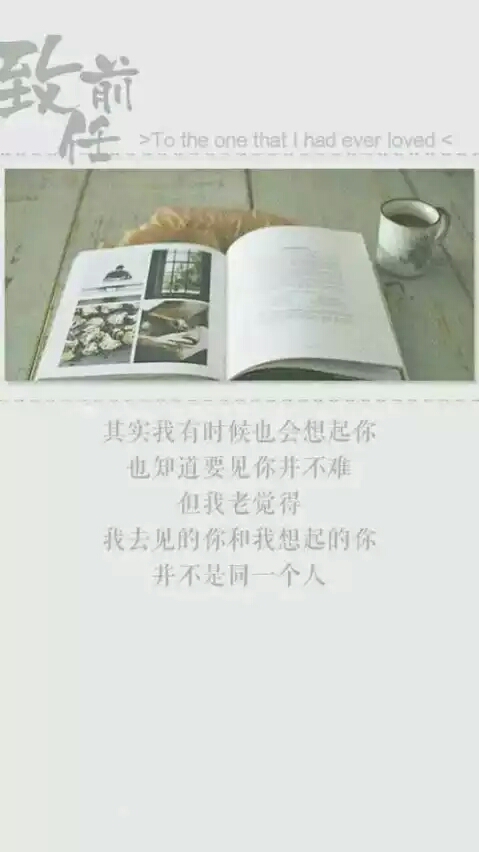 致前任
>To the one that I had ever loved <
其实我有时候也会想起你
也知道要见你并不难
但我老觉得
我去见的你和我想起的你
并不是同一个人